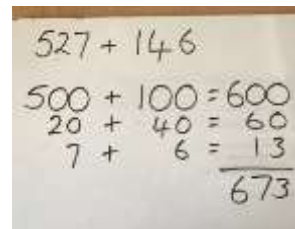 527 + 146
500 + 100 = 600
20 + 40 = 60
7 + 6 = 13
673